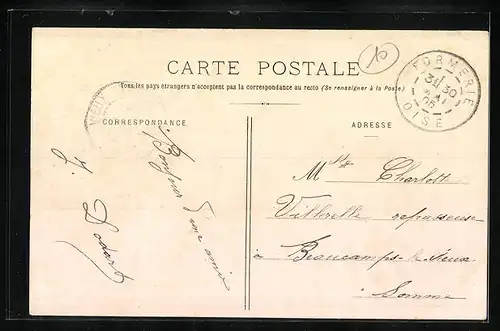 CARTE POSTALE
Tous les pays étrangers n'acceptent pas la correspondance au recto (Se renseigner à la Poste)
CORRESPONDANCE
ADRESSE
FORMERIE
3E 30
05
OISE
Bonjour d'une amie
J. Dodart
Mlle Charlotte
repasseuse
à Beaucamps-le-Vieux
Somme